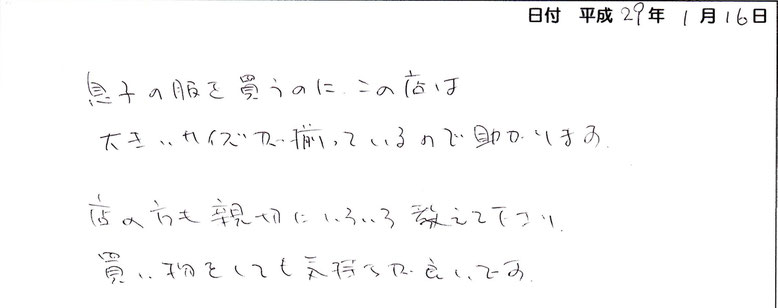 日付 平成29年1月16日
息子の服を買うのに、この店は
大きいサイズが揃っているので助かります。
店の方も親切にいろいろ教えて下さり、
買い物をしても気持ちが良いです。